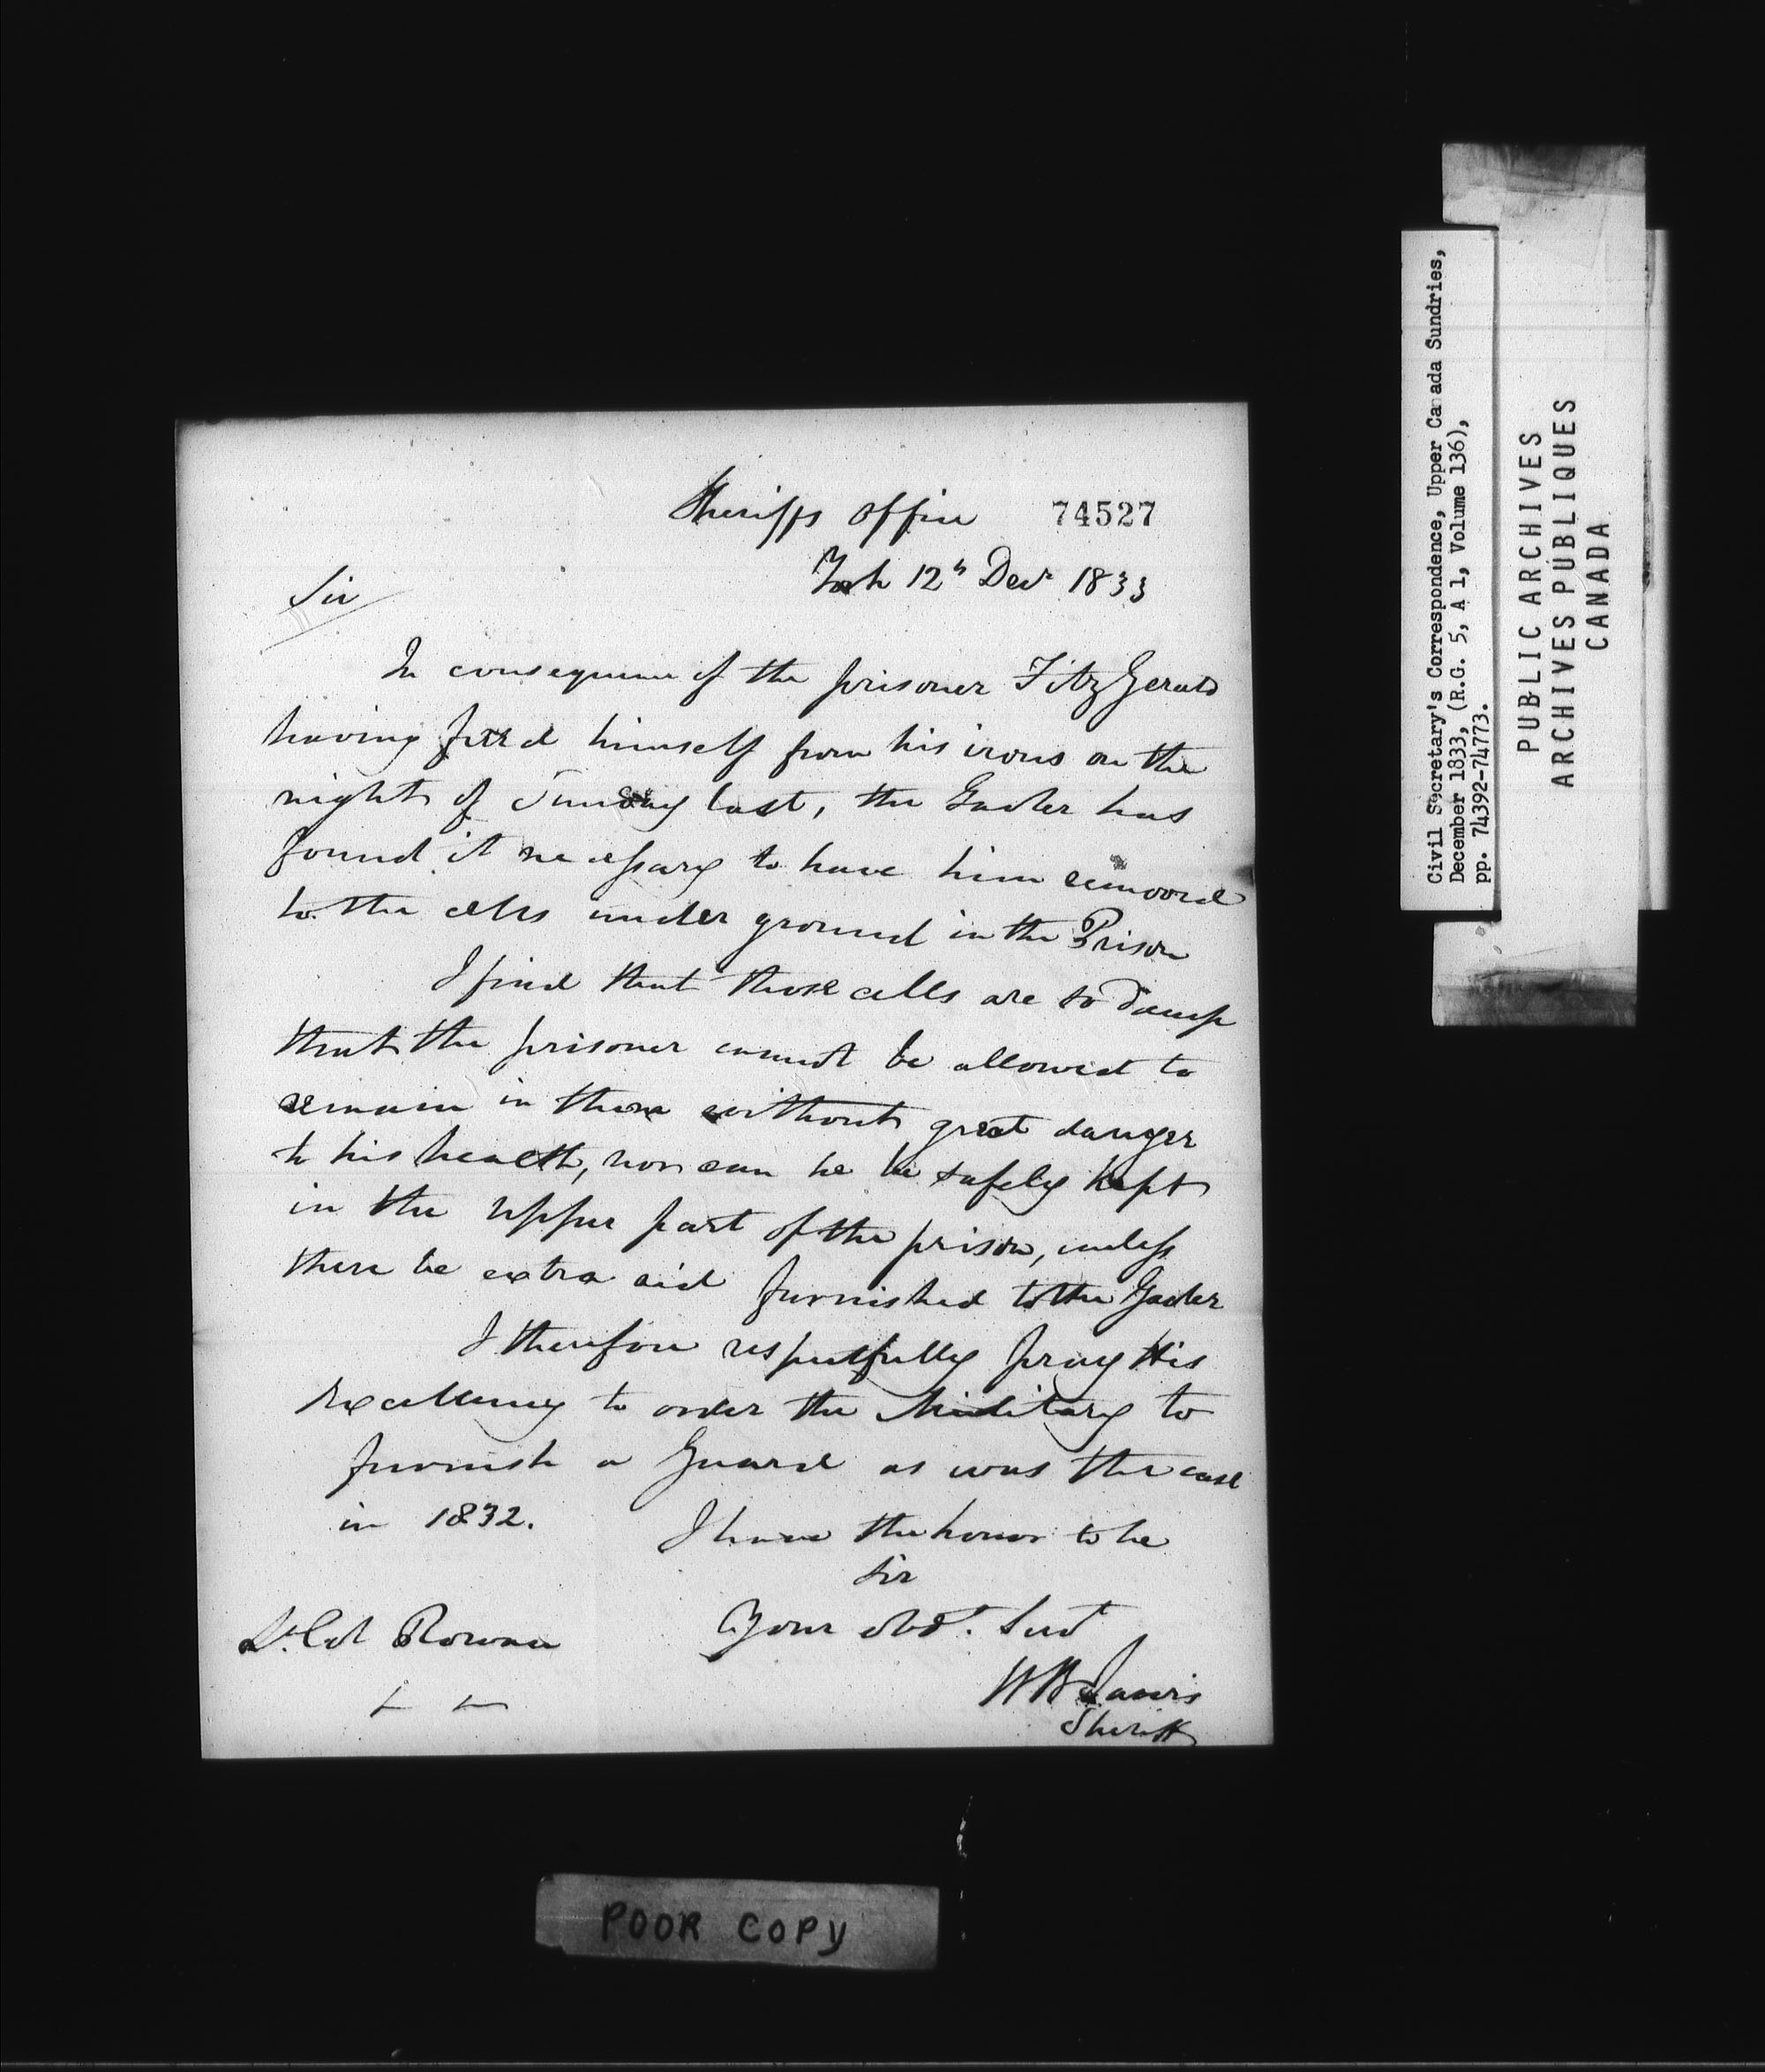 Sheriffs Office 74527
York 12th Decr 1833
Sir
In consequence of the prisoner FitzGerald
having freed himself from his irons on the
night of Sunday last, the Gaoler has
found it necessary to have him removed
to the cells under ground in the Prison
I find that those cells are so damp
that the prisoner cannot be allowed to
remain in them without great danger
to his health, nor can he be safely kept
in the upper part of the prison, unless
there be extra aid furnished to the Gaoler
I therefore respectfully pray His
Excellency to order the Military to
furnish a Guard as was the case
in 1832.
I have the honor to be
Sir
Your obdt. Servt
WB Jarvis
Sheriff
Lt. Col Rowan
POOR COPY
Civil Secretary's Correspondence, Upper Canada Sundries,
December 1833, (R.G. 5, A 1, Volume 136),
pp. 74392-74773.
PUBLIC ARCHIVES
ARCHIVES PUBLIQUES
CANADA